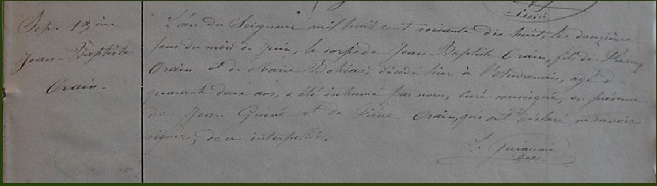 Sep. 13ème
Jean-Baptiste
Orain.
L'an du Seigneur mil huit cent soixante dix huit, le douzième
jour du mois de Juin, le corps de Jean-Baptiste Orain, fils de Pierre
Orain et de Marie décédé hier à agé de
quarante deux ans, a été inhumé par nous, curé soussigné, en présence
de Jean Guéné et de Pierre Orain, qui ont déclaré ne savoir
signer, de ce interpellés.